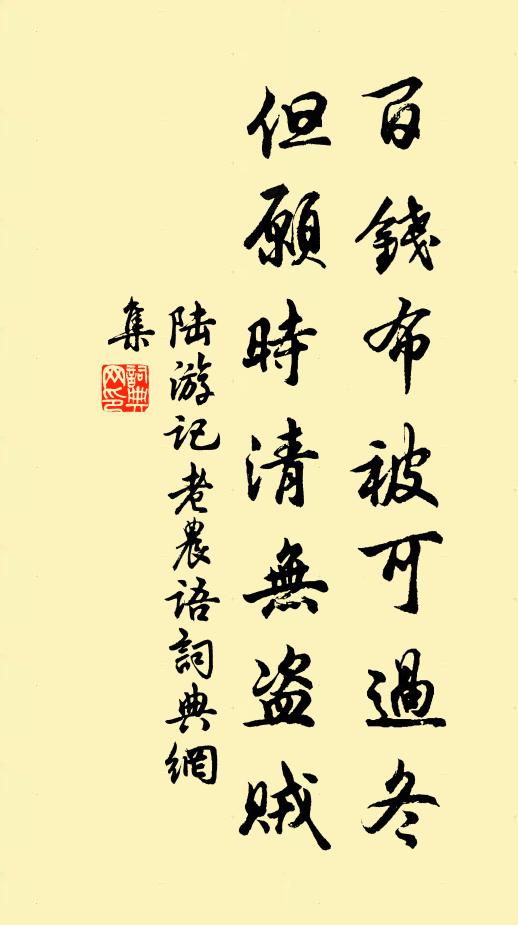 百錢布被可過冬
但願時清無盜賊
陆游记老農語詞典網
集
詞典
网印